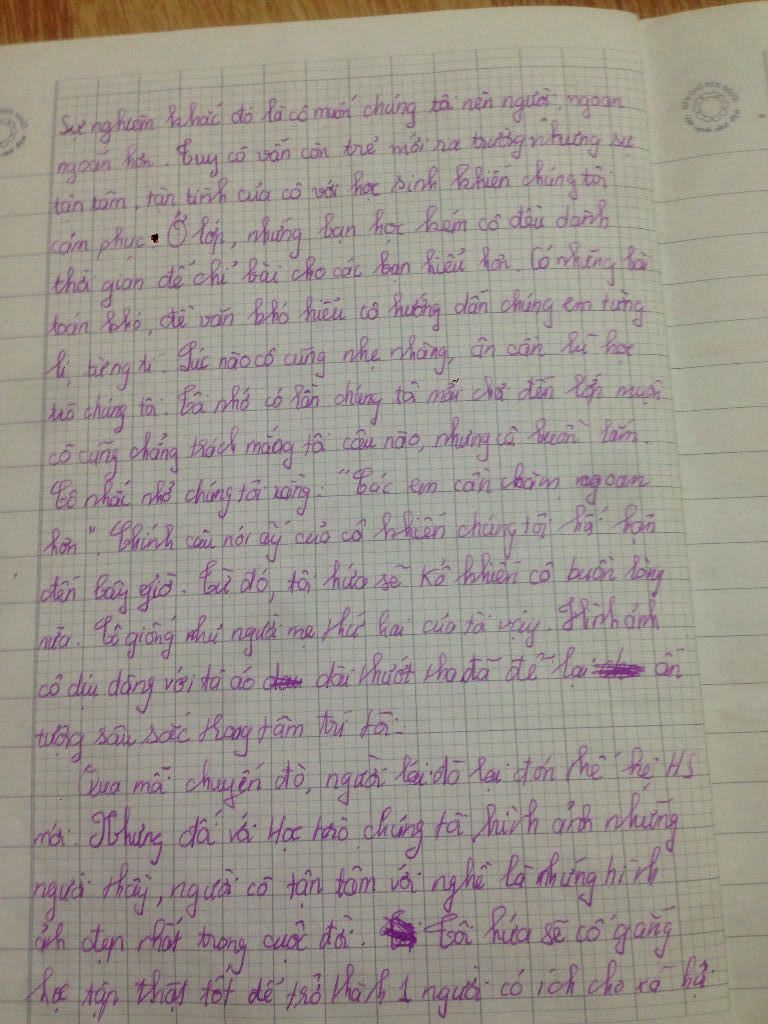 Sự nghiêm khắc đó là cô muốn chúng tôi nên người, ngoan
ngoãn hơn. Tuy cô vẫn còn trẻ mới ra trường nhưng sự
tận tâm, tận tình của cô với học sinh khiến chúng tôi
cảm phục. Ở lớp, những bạn học kém cô đều dành
thời gian để chỉ bài cho các bạn hiểu hơn. Có những bài
toán khó, đề văn khó hiểu cô hướng dẫn chúng em từng
li, từng tí. Lúc nào cô cũng nhẹ nhàng, ân cần lũ học
trò chúng tôi. Tôi nhớ có lần chúng tôi mải chơi đến lớp muộn
cô cũng chẳng trách mắng tôi câu nào, nhưng cô buồn lắm.
Cô nhắc nhở chúng tôi rằng: "Các em cần chăm ngoan
hơn". Chính câu nói ấy của cô khiến chúng tôi hối hận
đến bây giờ. Từ đó, tôi hứa sẽ kô khiến cô buồn lòng
nữa. Cô giống như người mẹ thứ hai của tôi vậy. Hình ảnh
cô dịu dàng với tà áo dài thướt tha đã để lại ấn
tượng sâu sắc trong tâm trí tôi.
Qua mỗi chuyến đò, người lái đò lại đón thế hệ HS
mới. Nhưng đối với Học trò chúng tôi hình ảnh những
người thầy, người cô tận tâm với nghề là những hình
ảnh đẹp nhất trong cuộc đời. Tôi hứa sẽ cố gắng
học tập thật tốt để trở thành 1 người có ích cho xã hội.